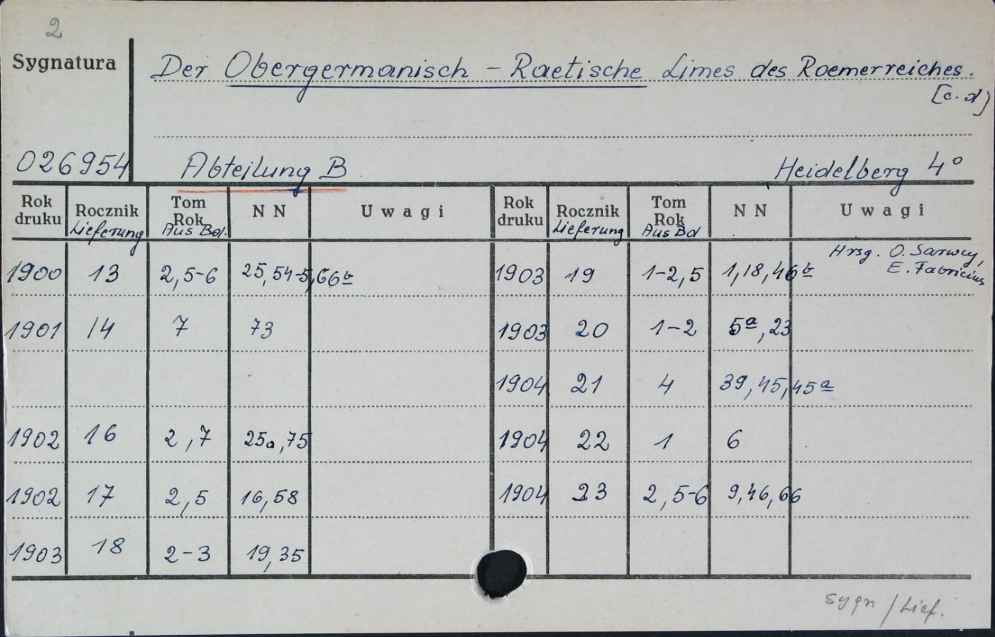 2
Sygnatura
Der Obergermanisch - Raetische Limes des Roemerreiches.
[c.d]
026954 Abteilung B Heidelberg 4°
Rok druku Rocznik Lieferung Tom Rok Aus Bd. N N Uwagi Rok druku Rocznik Lieferung Tom Rok Aus Bd N N Uwagi
1900 13 2,5-6 25,54-5,66b 1903 19 1-2,5 1,18,46b Hrsg. O. Sarwey,
E. Fabricius
1901 14 7 73 1903 20 1-2 5a,23
1904 21 4 39,45,45a
1902 16 2,7 25a,75 1904 22 1 6
1902 17 2,5 16,58 1904 23 2,5-6 9,46,66
1903 18 2-3 19,35
sygn / Lief.